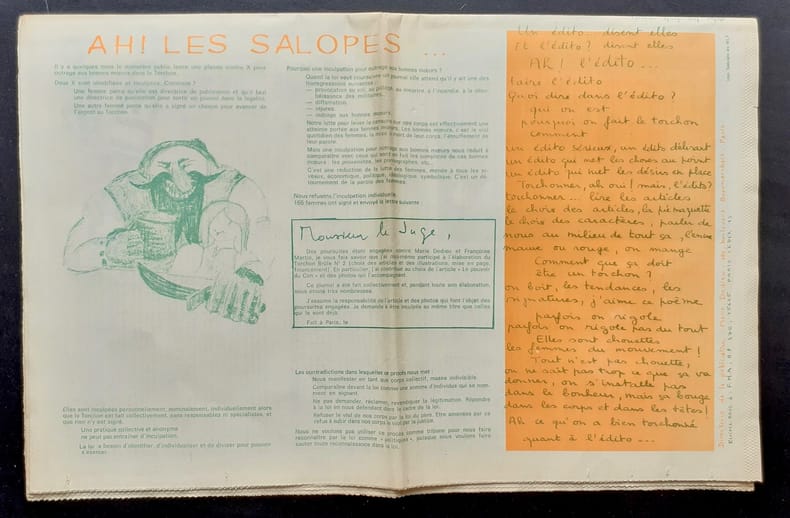 AH! LES SALOPES ...
Il y a quelques mois le ministère public lance une plainte contre X pour
outrage aux bonnes mœurs dans le Torchon.
Deux X sont identifiées et inculpées. Comment ?
Une femme parce qu'elle est directrice de publication et qu'il faut
une directrice de publication pour sortir un journal dans la légalité.
Une autre femme parce qu'elle a signé un chèque pour avancer de
l'argent au Torchon.
Elles sont inculpées personnellement, nominalement, individuellement alors
que le torchon est fait collectivement, sans responsables ni spécialistes, et
que rien n'y est signé.
Une pratique collective et anonyme
ne peut pas entraîner d'inculpation.
La loi a besoin d'identifier, d'individualiser et de diviser pour pouvoir
s'exercer.
Pourquoi une inculpation pour outrage aux bonnes mœurs ?
Quand la loi veut poursuivre un journal elle attend qu'il y ait une des
transgressions suivantes :
— provocation au vol, au pillage, au meurtre, à l'incendie, à la déso-
béissance des militaires,
— diffamation,
— injures,
— outrage aux bonnes mœurs.
Notre lutte pour lever la censure sur nos corps est effectivement une
atteinte portée aux bonnes mœurs. Les bonnes mœurs, c'est le viol
quotidien des femmes, la mise à mort de leur corps, l'étouffement de
leur parole.
Mais une inculpation pour outrage aux bonnes mœurs nous réduit à
comparaître avec ceux qui sont en fait les complices de ces bonnes
mœurs : les proxénètes, les pornographes, etc...
C'est une réduction de la lutte des femmes, menée à tous les ni-
veaux, économique, politique, idéologique, symbolique. C'est un dé-
tournement de la parole des femmes.
Nous refusons l'inculpation individuelle.
166 femmes ont signé et envoyé la lettre suivante :
Monsieur le Juge,
Des poursuites étant engagées contre Marie Dedieu et Françoise
Martin, je vous fais savoir que j'ai moi-même participé à l'élaboration du
Torchon Brûle N° 2 (choix des articles et des illustrations, mise en page,
financement). En particulier, j'ai contribué au choix de l'article « Le pouvoir
du Con » et des photos qui l'accompagnent.
Ce journal a été fait collectivement et, pendant toute son élaboration,
nous étions très nombreuses.
J'assume la responsabilité de l'article et des photos qui font l'objet des
poursuites engagées. Je demande à être inculpée au même titre que celles
qui le sont déjà.
Fait à Paris, le
Les contradictions dans lesquelles ce procès nous met :
Nous manifester en tant que corps collectif, masse indivisible.
Comparaître devant la loi comme une somme d'individus qui se nom-
ment en signant.
Ne pas demander, réclamer, revendiquer la légitimation. Répondre
à la loi en nous défendant dans le cadre de la loi.
Refuser le viol de nos corps par la loi du père. Être amenées par ce
refus à subir dans nos corps le viol par la justice.
Nous ne voulons pas utiliser ce procès comme tribune pour nous faire
reconnaître par la loi comme « politiques », puisque nous voulons faire
sauter toute reconnaissance dans la loi.
Un édito... disent elles
Et l'édito ? disent elles
Ah ! l'édito ...
faire l'édito
Quoi dire dans l'édito ?
qui on est
pourquoi on fait le torchon
comment
un édito sérieux, un édito délirant
un édito qui met les choses au point
un édito qui met les désirs en place
Torchonner, ah oui ! mais, l'édito ?
torchonner ... lire les articles
le choix des articles, la maquette
le choix des caractères, parler de
nous au milieu de tout ça, l'encre
mauve ou rouge, on mange
Comment que ça doit
être un torchon ?
on boit, les tendances, les
signatures, j'aime ce poème
parfois on rigole
parfois on rigole pas du tout
Elles sont chouettes
les femmes du mouvement !
Tout n'est pas chouette,
on ne sait pas trop ce que ça va
donner, on s'installe pas
dans le bonheur, mais ça bouge
dans les corps et dans les têtes !
Ah ce qu'on a bien torchonné
quant à l'édito ...
Directrice de la publication : Marie Dedieu